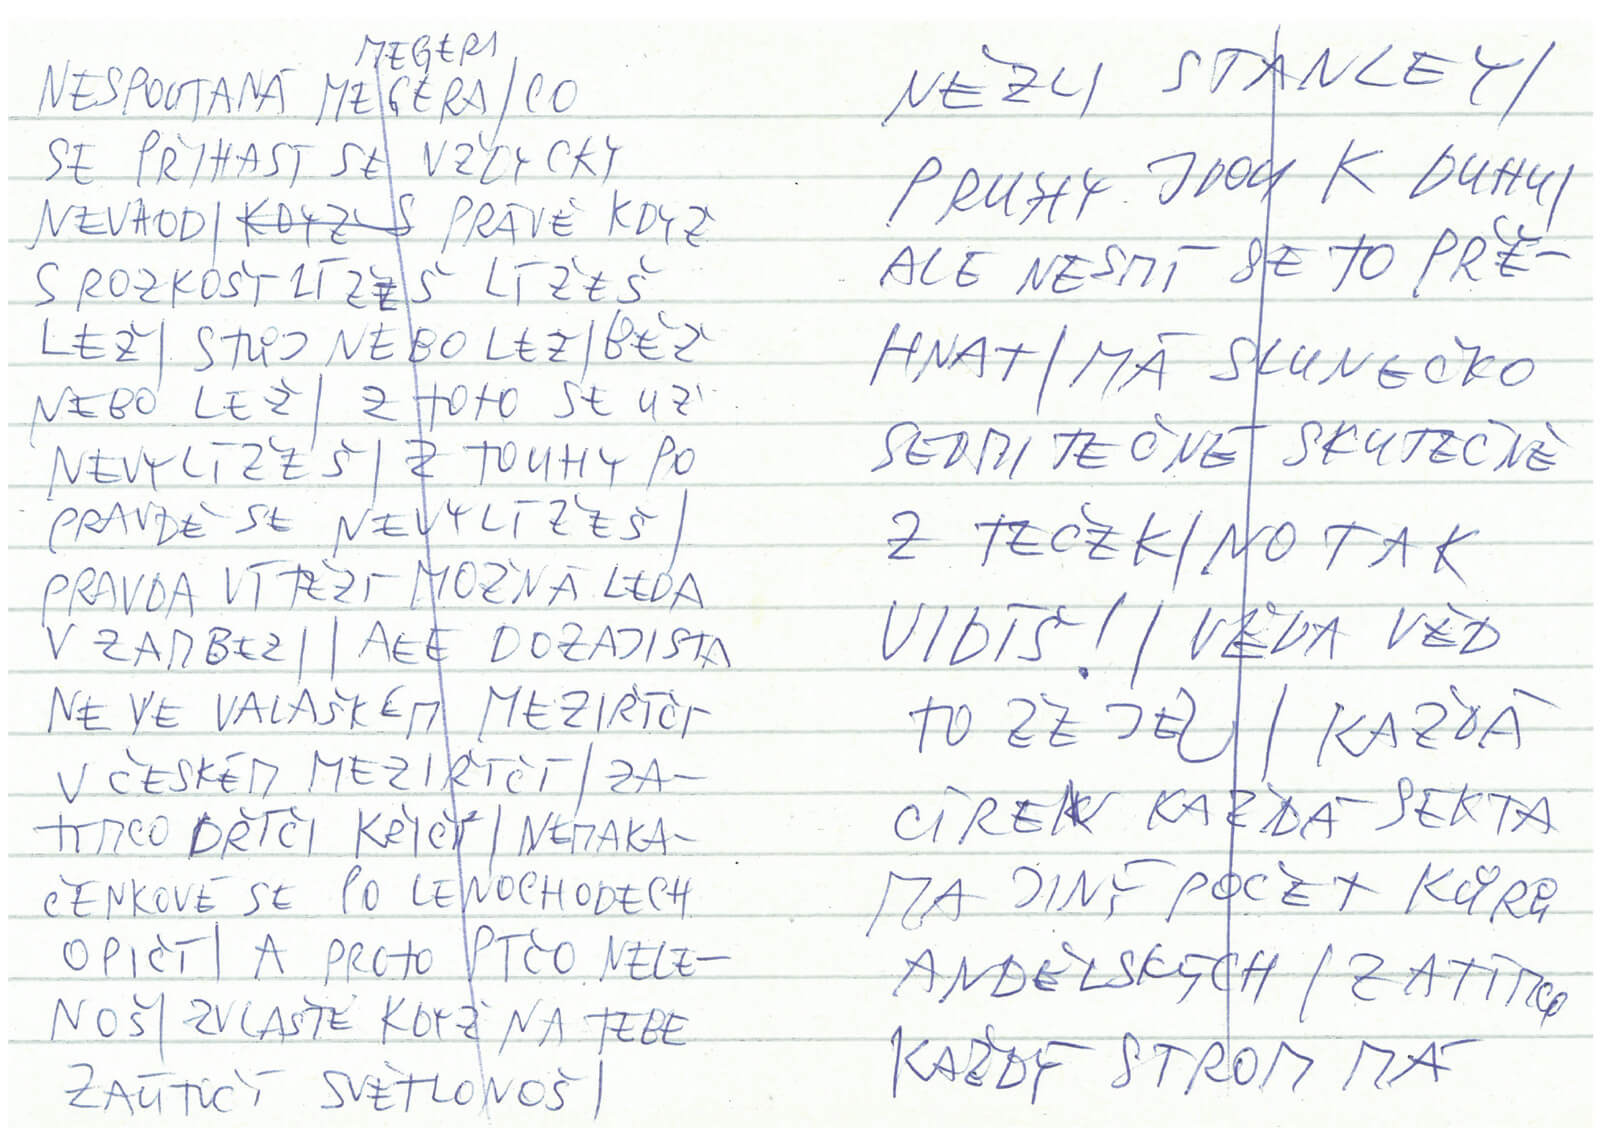 MEGERY
NESPOUTANÁ MEGERA / CO
SE PŘIHÁST SE VŽDYCKY
NEVHOD / KDYŽ S PRÁVĚ KDYŽ
S ROZKOŠÍ LÍŽEŠ LÍŽEŠ
LEŽ / STŮJ NEBO LEŽ / BĚŽ
NEBO LEŽ / Z TOTO SE UŽ
NEVYLÍŽEŠ / Z TOUHY PO
PRAVDĚ SE NEVYLÍŽEŠ /
PRAVDA VÍTĚZÍ MOŽNÁ LEDA
V ZAMBEZI / ALE DOZAJISTA
NE VE VALAŠKÉM MEZIŘÍČÍ
V ČESKÉM MEZIŘÍČÍ / ZA-
TÍMCO DŘÍČI KŘIČÍ / NEMAKA-
ČENKOVÉ SE PO LENOCHODECH
OPIČÍ / A PROTO PTČO NELE-
NOŠ / ZVLÁŠTĚ KDYŽ NA TEBE
ZAÚTIČÍ SVĚTLONOŠ /
NĚŽLI STANLEY /
PRUHY JDOU K DUHU /
ALE NESMÍ SE TO PŘE-
HNAT / MÁ SLUNEČKO
SEDMITEČNÉ SKUTEČNĚ
Z TEČEK / NO TAK
VIDÍŠ! / VĚDA VĚD
TO ŽE JE / KAŽDÁ
CÍREV KAŽDÁ SEKTA
MÁ JINÝ POČET KŮRŮ
ANDĚLSKÝCH / ZATÍMCO
KAŽDÝ STROM MÁ